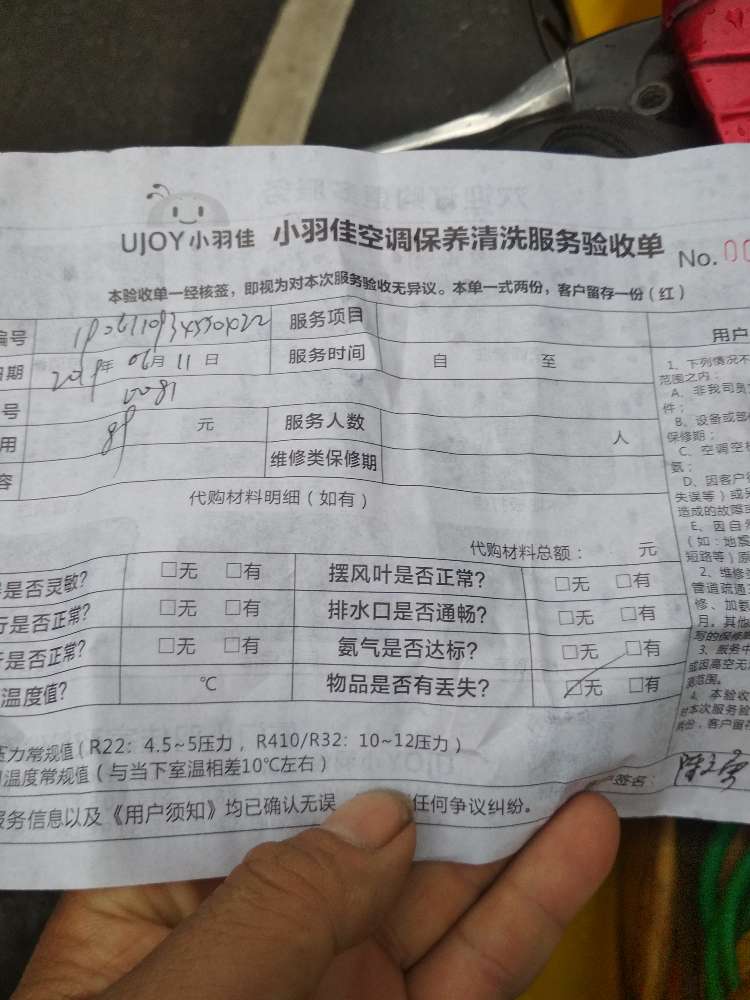 UJOY小羽佳 小羽佳空调保养清洗服务验收单 No. 00
本验收单一经核签，即视为对本次服务验收无异议。本单一式两份，客户留存一份（红）
编号 服务项目 用户
日期 2019年 06月 11日 服务时间 自 至
号 0081
用 元 服务人数 人
容 维修类保修期
代购材料明细（如有）
代购材料总额： 元
是否灵敏? □无 □有 摆风叶是否正常? □无 □有
行是否正常? □无 □有 排水口是否通畅? □无 □有
是否正常? □无 □有 氨气是否达标? □无 □有
温度值? ℃ 物品是否有丢失? □无 □有
压力常规值（R22：4.5~5压力，R410/R32：10~12压力）
温度常规值（与当下室温相差10℃左右）
服务信息以及《用户须知》均已确认无误 任何争议纠纷。
户签名：
1、下列情况不
范围之内：
A、非我司员
件；
B、设备或部
保修期；
C、空调空
氨；
D、因客户
失误等）或
造成的故障或
E、因自
（如：地震
短路等）原
2、维修
管道疏通
修、加氨
月，其他
写的保修期
3、服务中
或因高空无
范围。
4、本验收
对本次服务验
份，客户留存